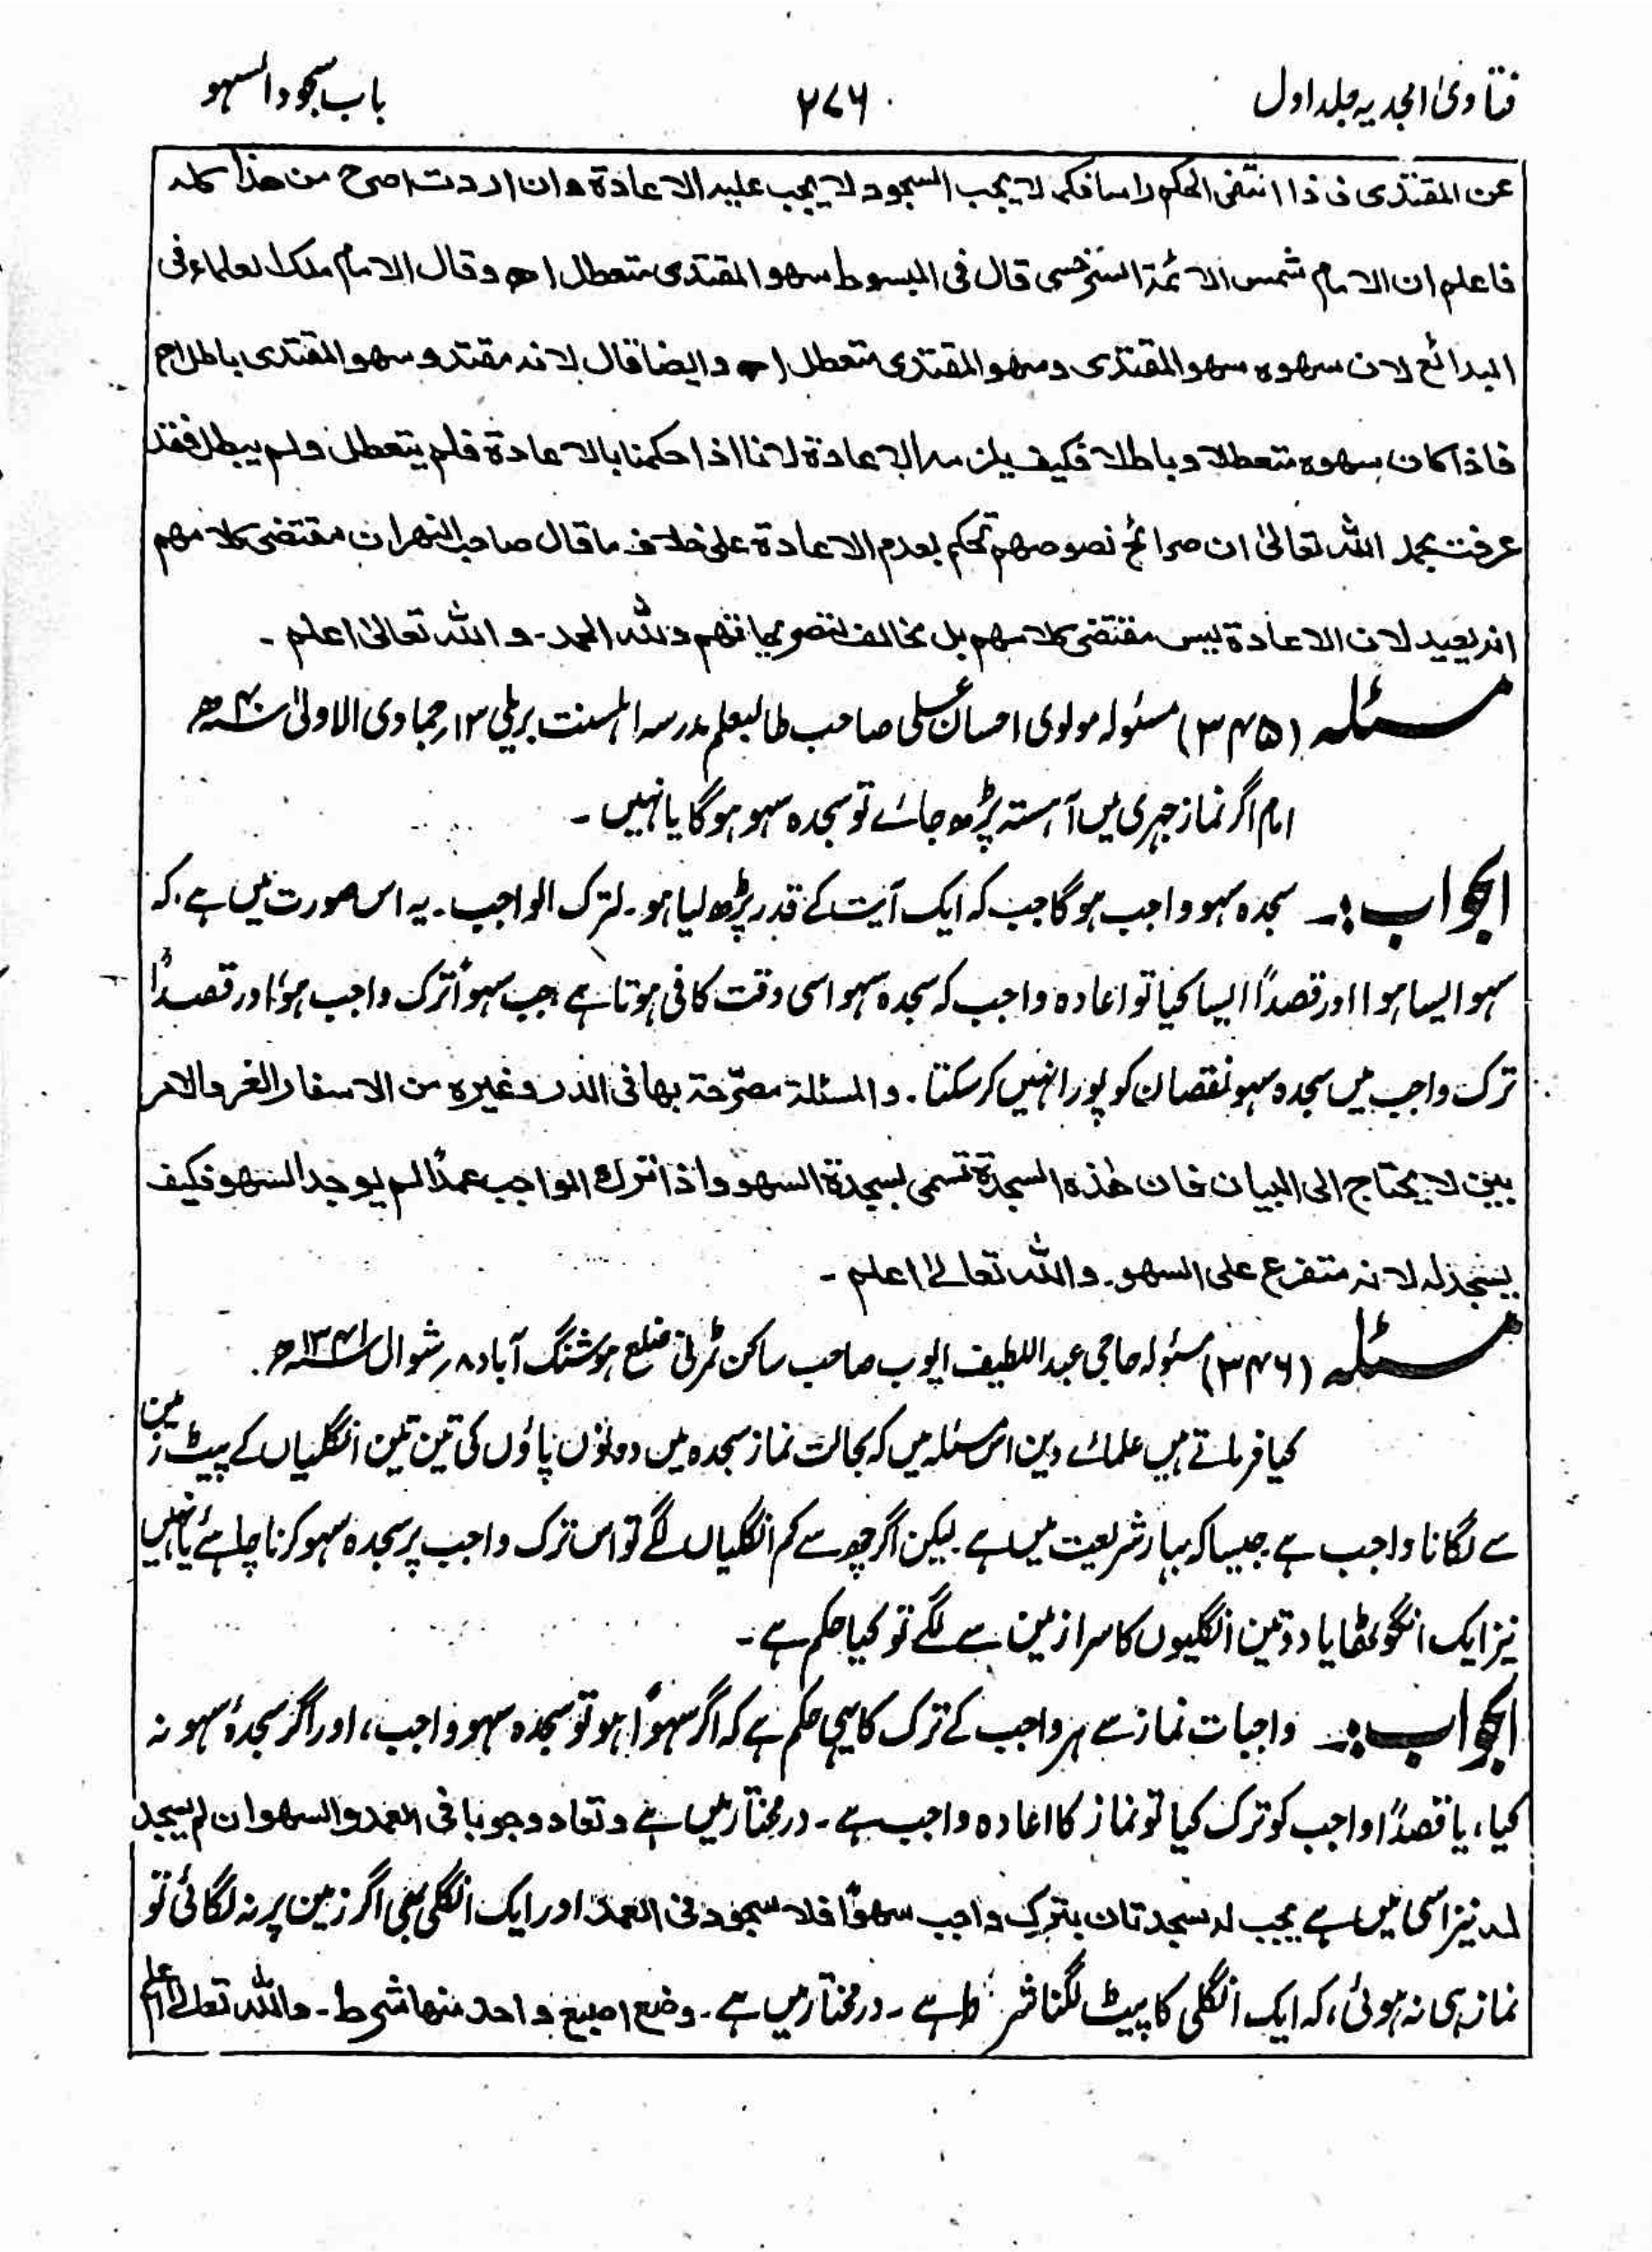 فتاویٰ امجدیہ جلد اول ۲۷۶ باب سجود السہو
عن المقتدی فاذا انتفی الحکم راسا فکما لا یجب السجود لا یجب علیہ الاعادۃ وان اردت اصرح من ھذا کلہ
فاعلم ان الامام شمس الائمۃ السرخسی قال فی المبسوط سھو المقتدی متعطل اھ وقال الامام ملک العلماء فی
البدائع لان سھوہ سھو المقتدی وسھو المقتدی متعطل اھ وایضا قال لانہ مقتد وسھو المقتدی باطل اھ
فاذا کان سھوہ متعطلا وباطلا فکیف یلزمہ الاعادۃ لانا اذا حکمنا بالاعادۃ فلم یتعطل ولم یبطل فقد
عرفت بحمد اللہ تعالیٰ ان صرائح نصوصھم تحکم بعدم الاعادۃ علی خلاف ما قال صاحب النھر ان مقتضی کلامھم
انہ یعید لان الاعادۃ لیس مقتضی کلامھم بل مخالف لتصریحاتھم وللہ الحمد۔ واللہ تعالیٰ اعلم۔
مسئلہ (۳۴۵) مسئولہ مولوی احسان علی صاحب طالبعلم مدرسہ اہلسنت بریلی ۱۳؍جمادی الاولیٰ ۴۰ھ
امام اگر نماز جہری میں آہستہ پڑھ جائے تو سجدہ سہو ہوگا یا نہیں۔
الجواب:۔ سجدہ سہو واجب ہوگا جب کہ ایک آیت کے قدر پڑھ لیا ہو۔ لترک الواجب۔ یہ اس صورت میں ہے، کہ
سہو ایسا ہوا اور قصداً ایسا کیا تو اعادہ واجب کہ سجدہ سہو اسی وقت کافی ہوتا ہے جب سہواً ترک واجب ہوا، اور قصداً
ترک واجب میں سجدہ سہو نقصان کو پورا نہیں کرسکتا۔ والمسئلۃ مصرّحۃ بھا فی الدر وغیرہ من الاسفار الغر والامر
بین لا یحتاج الی البیان فان ھٰذہ السجدۃ تسمی بسجدۃ السھو واذا ترک الواجب عمدًا لم یوجد السھو فکیف
یسجد لہ لانہ متفرع علی السھو۔ واللہ تعالیٰ اعلم۔
مسئلہ (۳۴۶) مسئولہ حاجی عبد اللطیف ایوب صاحب ساکن ٹمرنی ضلع ہوشنگ آباد ۸؍شوال ۱۳۴۱ھ۔
کیا فرماتے ہیں علمائے دین اس مسئلہ میں کہ بحالت نماز سجدہ میں دونوں پاؤں کی تین تین انگلیاں کے پیٹ زمین
سے لگانا واجب ہے جیسا کہ بہار شریعت میں ہے لیکن اگر چھ سے کم انگلیاں لگے تو اس ترک واجب پر سجدہ سہو کرنا چاہئے یا نہیں
نیز ایک انگوٹھا یا دو تین انگلیوں کا سرا زمین سے لگے تو کیا حکم ہے۔
الجواب:۔ واجبات نماز سے ہر واجب کے ترک کا یہی حکم ہے کہ اگر سہواً ہو تو سجدہ سہو واجب، اور اگر سجدۂ سہو نہ
کیا، یا قصداً واجب کو ترک کیا تو نماز کا اعادہ واجب ہے۔ درمختار میں ہے وتعاد وجوبا فی العمد والسھو ان لم یسجد
لہ نیز اسی میں ہے یجب لہ سجدتان بترک واجب سھوًا فلا سجود فی العمد اور ایک انگلی بھی اگر زمین پر نہ لگائی تو
نماز ہی نہ ہوئی، کہ ایک انگلی کا پیٹ لگنا شرط ہے۔ درمختار میں ہے۔ وضع اصبع واحد منھا شرط۔ واللہ تعالیٰ اعلم